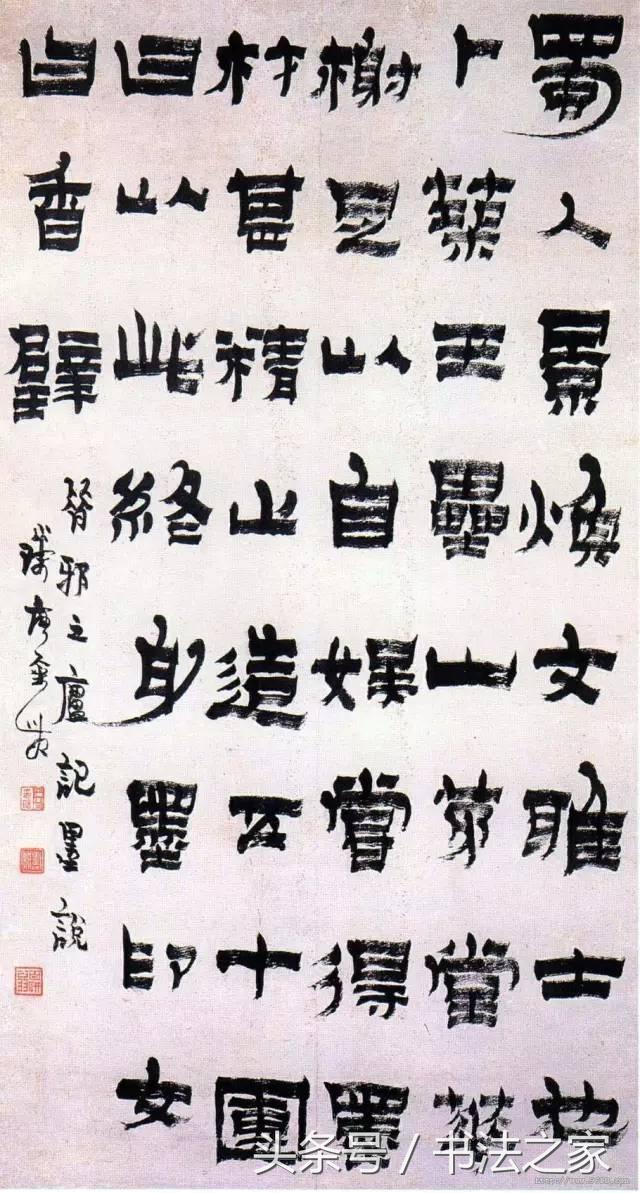 蜀人景煥文雅士也
卜築玉壘山茅堂花
榭足以自娛嘗得墨
材甚精止造五十團
曰以此終身墨印文
曰香璧
昔邪之廬記墨一說
錢唐金農
头条号 / 书法之家